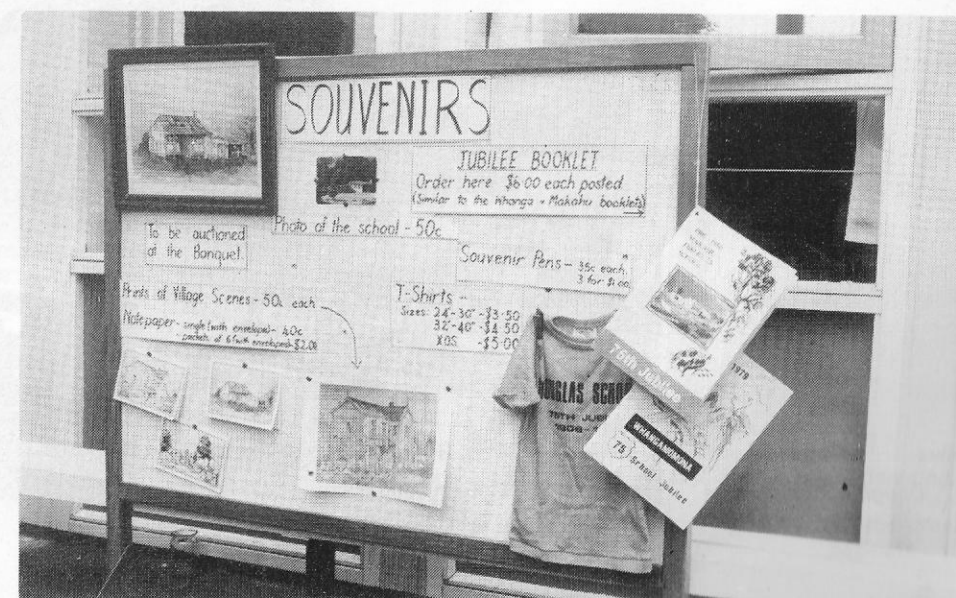 SOUVENIRS
JUBILEE BOOKLET
Order here $6.00 each posted
(Similar to the Whanga & Makahu booklets)
Photo of the school - 50c
To be auctioned
at the Banquet.
Souvenir Pens - 35c each,
3 for $1.00
Prints of Village Scenes - 50c each
Notepaper - single (with envelope) - 40c
- packets of 6 (with envelopes) $2.00
T-Shirts -
Sizes: 24"-30" - $3.50
32"-40" - $4.50
XOS - $5.00
DOUGLAS SCHOO
75TH JUBI
75th Jubilee
1979
WHANGAMOMONA
75 School Jubilee